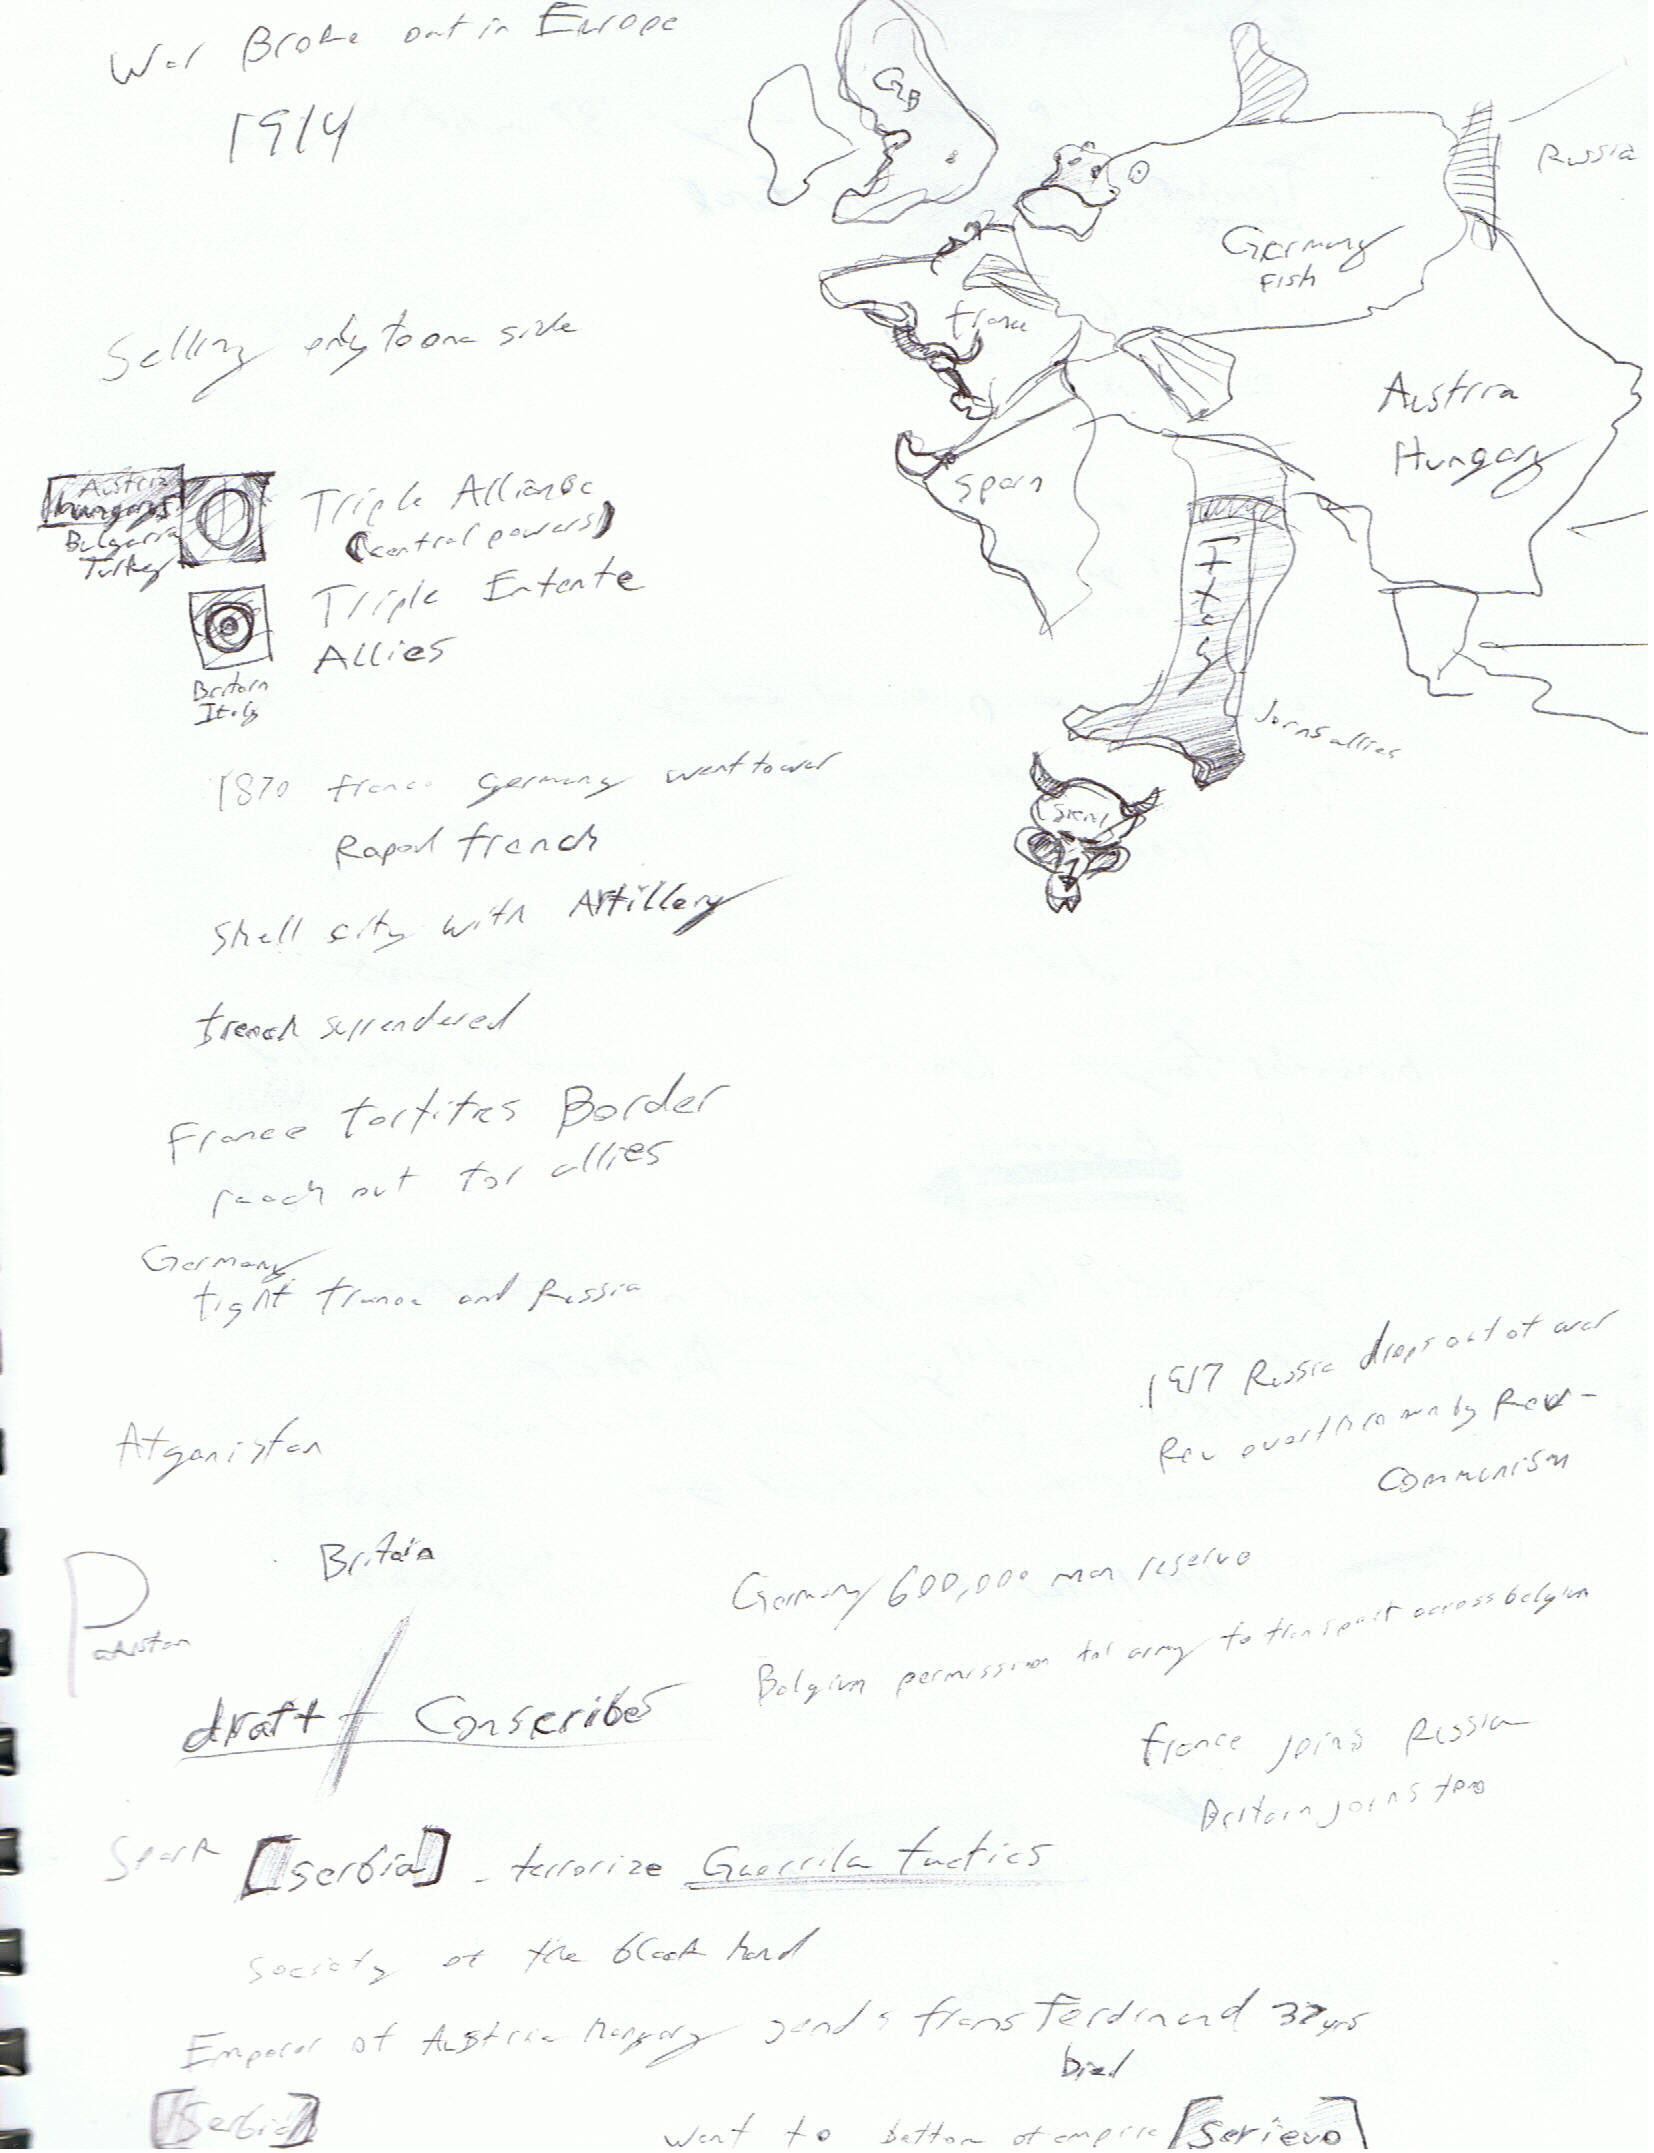 War Broke out in Europe
1914
GB
Russia
Germany
Fish
france
Austria
Hungary
Spain
Italy
Joins allies
Selling only to one side
Austria
hungary
Bulgaria
Turkey
Triple Alliance
(central powers)
Triple Entente
Allies
Britain
Italy
1870 france germany went to war
french
Shell city with Artillery
french surrendered
France fortifies Border
reach out for allies
Germany
fight france and Russia
1917 Russia drops out of war
Rev overthrown by Rev -
Communism
Afganistan
Britain
Pakistan
draft / Conscribes
Germany 600,000 man reserve
Belgium permission for army to transport across belgium
france joins Russia
Britain joins too
Spark [serbia] - terrorize Guerrila tactics
Society of the black hand
Emperor of Austria Hungary sends frans Ferdinand 37 yrs
[Serbia]
went to bottom of empire [serievo]